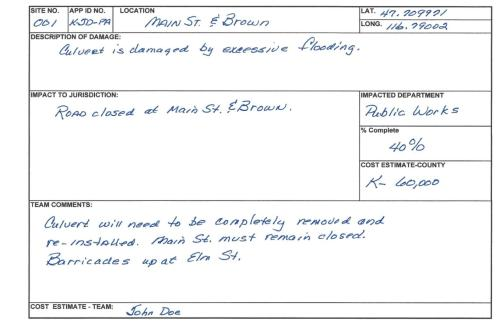 SITE NO. APP ID NO. LOCATION LAT. 47.709971
001 KJD-PA MAIN ST. & Brown LONG. 116.79002
DESCRIPTION OF DAMAGE:
Culvert is damaged by excessive flooding.
IMPACT TO JURISDICTION:
ROAD closed at Main St. & Brown.
IMPACTED DEPARTMENT
Public Works
% Complete
40%
COST ESTIMATE-COUNTY
K- 60,000
TEAM COMMENTS:
Culvert will need to be completely removed and
re-installed. Main St. must remain closed.
Barricades up at Elm St.
COST ESTIMATE - TEAM: John Doe